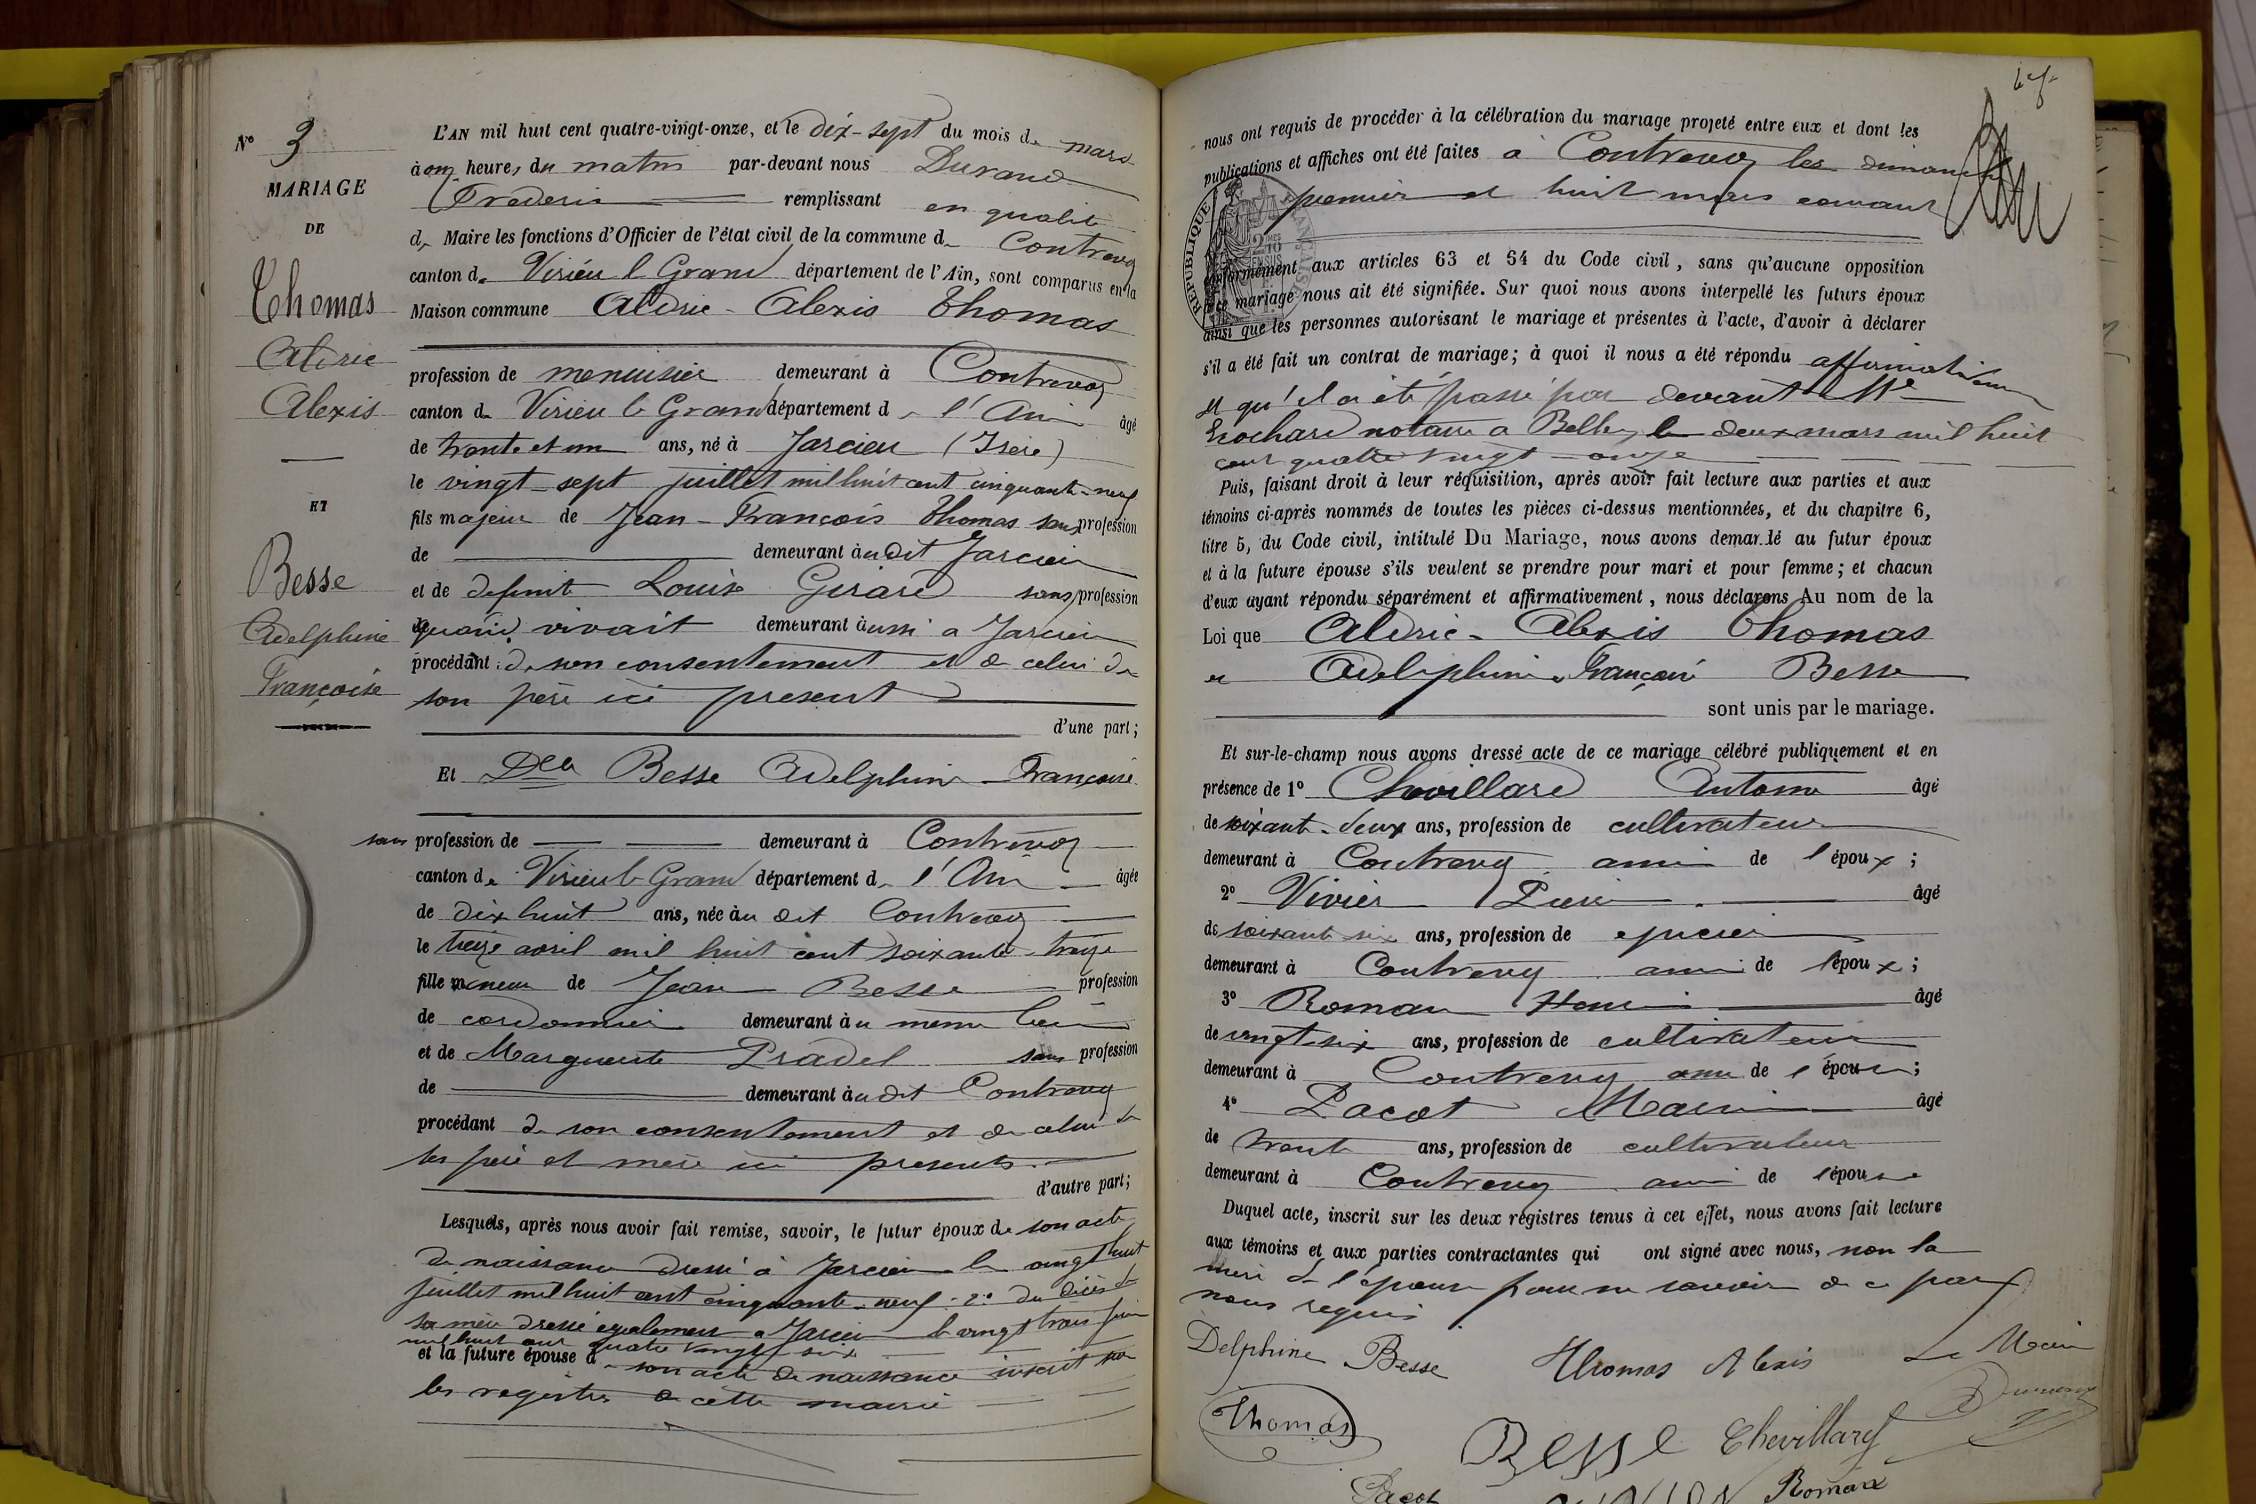 N° 3
MARIAGE
DE
Thomas
Aldric
Alexis
ET
Besse
Adelphine
Françoise
L'AN mil huit cent quatre-vingt-onze, et le dix-sept du mois de mars
à onze heures du matin par-devant nous Durand
Frederic remplissant en qualité
de Maire les fonctions d'Officier de l'état civil de la commune de Contrevoz
canton de Virieu le Grand département de l'Ain, sont comparus en la
Maison commune Aldric-Alexis Thomas
profession de menuisier demeurant à Contrevoz
canton de Virieu le Grand département de l'Ain âgé
de trente et un ans, né à Jarcieu (Isère)
le vingt-sept juillet mil huit cent cinquante-neuf
fils majeur de Jean-François Thomas sans profession
de demeurant à u dit Jarcieu
et de defunte Louise Girard sans profession
quand vivait demeurant aussi a Jarcieu
procédant de son consentement et de celui de
son père ici present
d'une part;
Et Dlle Besse Adelphine Françoise
sans profession de demeurant à Contrevoz
canton de Virieu le Grand département de l'Ain âgée
de dix huit ans, née à u dit Contrevoz
le treize avril mil huit cent soixante-treize
fille mineure de Jean Besse profession
de cordonnier demeurant à u meme lieu
et de Marguerite Pradel sans profession
de demeurant à u dit Contrevoz
procédant de son consentement et de celui de
ses père et mère ici presents
d'autre part;
Lesquels, après nous avoir fait remise, savoir, le futur époux de son acte
de naissance dressé à Jarcieu le vingt huit
juillet mil huit cent cinquante-neuf: 2° du décès de
sa mère dressé egalement a Jarcieu le vingt trois juin
mil huit cent quatre vingt six
et la future épouse de son acte de naissance inscrit sur
les registres de cette mairie
nous ont requis de procéder à la célébration du mariage projeté entre eux et dont les
publications et affiches ont été faites a Contrevoz les dimanches
premier et huit mars courant
RÉPUBLIQUE FRANÇAISE
conformément aux articles 63 et 64 du Code civil, sans qu'aucune opposition
à ce mariage nous ait été signifiée. Sur quoi nous avons interpellé les futurs époux
ainsi que les personnes autorisant le mariage et présentes à l'acte, d'avoir à déclarer
s'il a été fait un contrat de mariage; à quoi il nous a été répondu affirmativement
et qu'il a été passé par devant Me
notaire a Belley le deux mars mil huit
cent quatre vingt-onze
Puis, faisant droit à leur réquisition, après avoir fait lecture aux parties et aux
témoins ci-après nommés de toutes les pièces ci-dessus mentionnées, et du chapitre 6,
titre 5, du Code civil, intitulé Du Mariage, nous avons demandé au futur époux
et à la future épouse s'ils veulent se prendre pour mari et pour femme; et chacun
d'eux ayant répondu séparément et affirmativement, nous déclarons Au nom de la
Loi que Aldric-Alexis Thomas
et Adelphine Françoise Besse
sont unis par le mariage.
Et sur-le-champ nous avons dressé acte de ce mariage célébré publiquement et en
présence de 1° Chevillard Antoine âgé
de soixante-deux ans, profession de cultivateur
demeurant à Contrevoz ami de l'époux;
2° Vivier Pierre âgé
de soixante six ans, profession de epicier
demeurant à Contrevoz ami de l'époux;
3° Roman Henri âgé
de vingt-six ans, profession de cultivateur
demeurant à Contrevoz ami de l'épouse;
4° Pacot Marin âgé
de trente ans, profession de cultivateur
demeurant à Contrevoz ami de l'épouse
Duquel acte, inscrit sur les deux régistres tenus à cet effet, nous avons fait lecture
aux témoins et aux parties contractantes qui ont signé avec nous, non la
mère de l'épouse pour ne savoir de ce par
nous requis
Delphine Besse Thomas Alexis Le Maire
Durand
Thomas Besse Chevillard
Pacot Vivier Roman